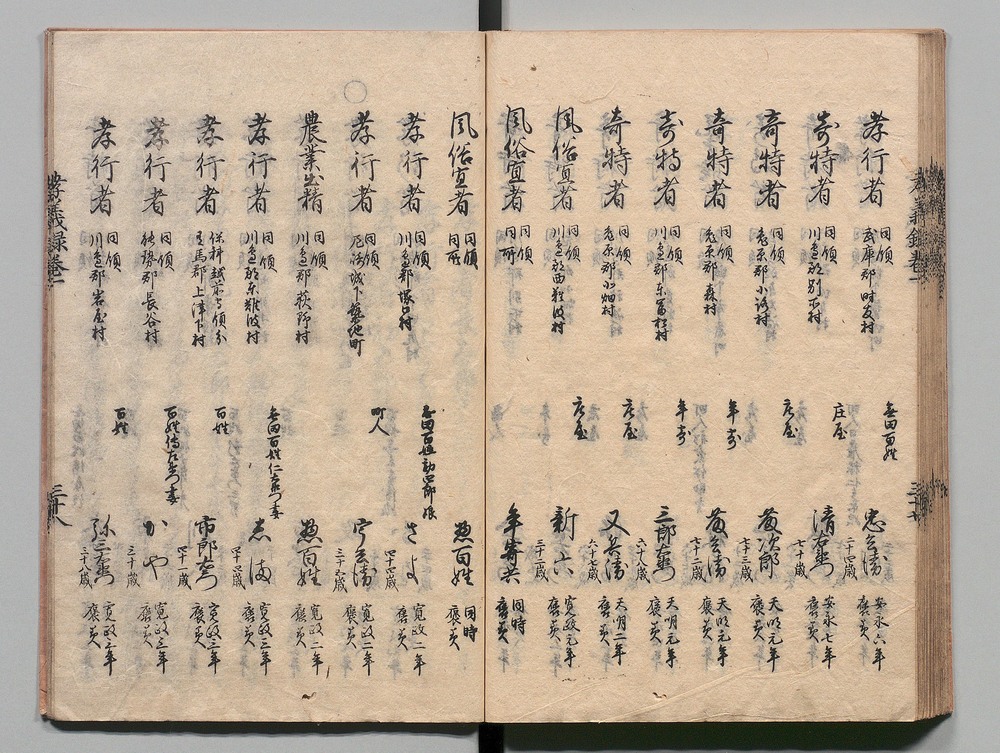 孝行者 同領 武庫郡時友村 無田百姓 忠兵衛 二十四歳 安永六年 褒美
奇特者 同領 川邉郡別所村 庄屋 清右衛門 七十歳 安永七年 褒美
奇特者 同領 菟原郡小路村 庄屋 藤次郎 七十三歳 天明元年 褒美
奇特者 同領 菟原郡森村 年寄 藤兵衛 七十二歳 天明元年 褒美
奇特者 同領 川邉郡東富松村 年寄 三郎右衛門 六十八歳 天明元年 褒美
奇特者 同領 菟原郡北畑村 庄屋 又兵衛 六十七歳 天明二年 褒美
風俗宜者 同領 川邉郡西難波村 庄屋 新六 三十二歳 寛政元年 褒美
風俗宜者 同領 同所 年寄共 同時 褒美
風俗宜者 同領 同所 惣百姓 同時 褒美
孝行者 同領 川邉郡塚口村 無田百姓勘四郎娘 さよ 四十四歳 寛政二年 褒美
孝行者 同領 尼崎城下築地町 町人 宇兵衛 三十六歳 寛政二年 褒美
農業出精 同領 川邉郡荻野村 惣百姓 寛政二年 褒美
孝行者 同領 川邉郡東難波村 無田百姓仁右衛門妻 志ま 四十四歳 寛政三年 褒美
孝行者 保科越前守領分 有馬郡上津下村 百姓 市郎右衛門 四十一歳 寛政三年 褒美
孝行者 同領 能勢郡長谷村 百姓傳左衛門妻 かや 三十歳 寛政三年 褒美
孝行者 同領 川邉郡岩屋村 百姓 弥三右衛門 三十八歳 寛政三年 褒美
孝義録巻一
三十八